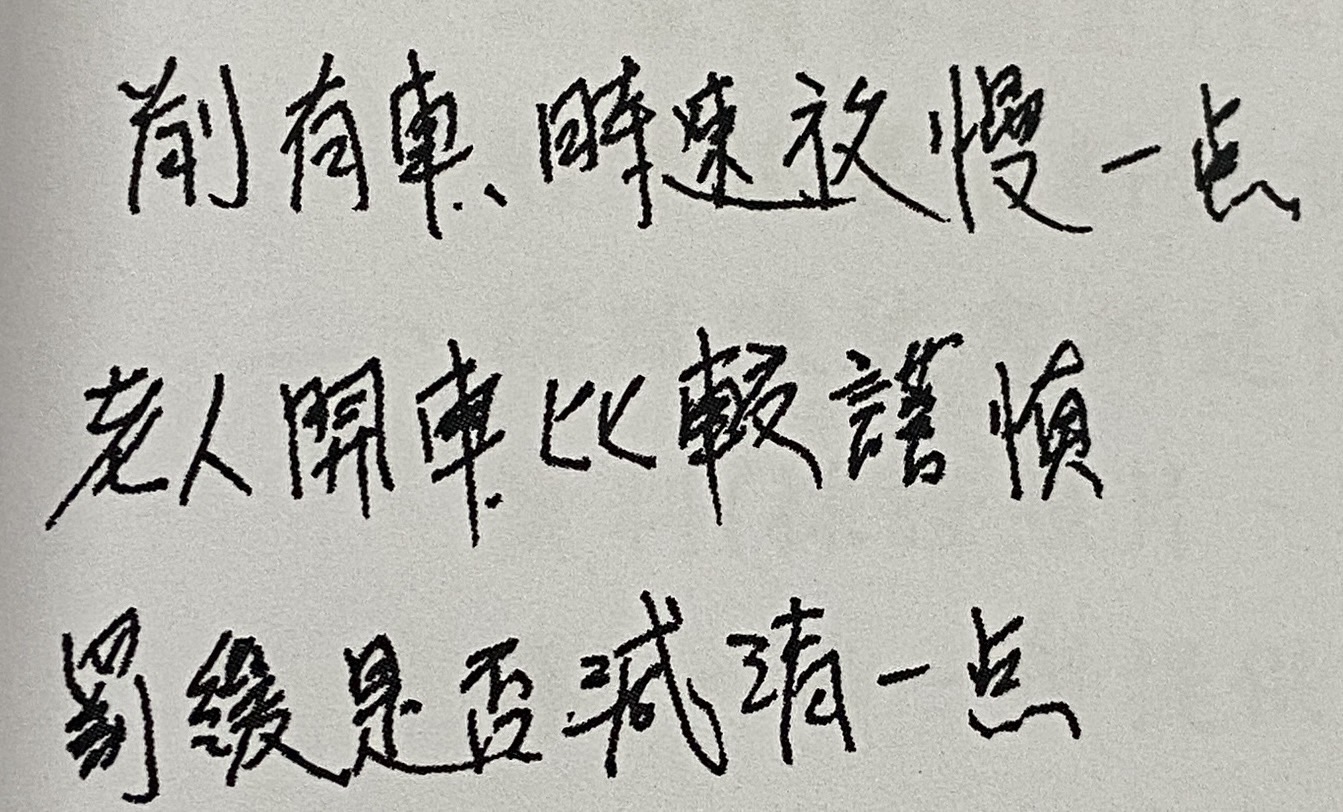 前有車、時速放慢一点
老人開車比較謹慎
罰緩是否減清一点